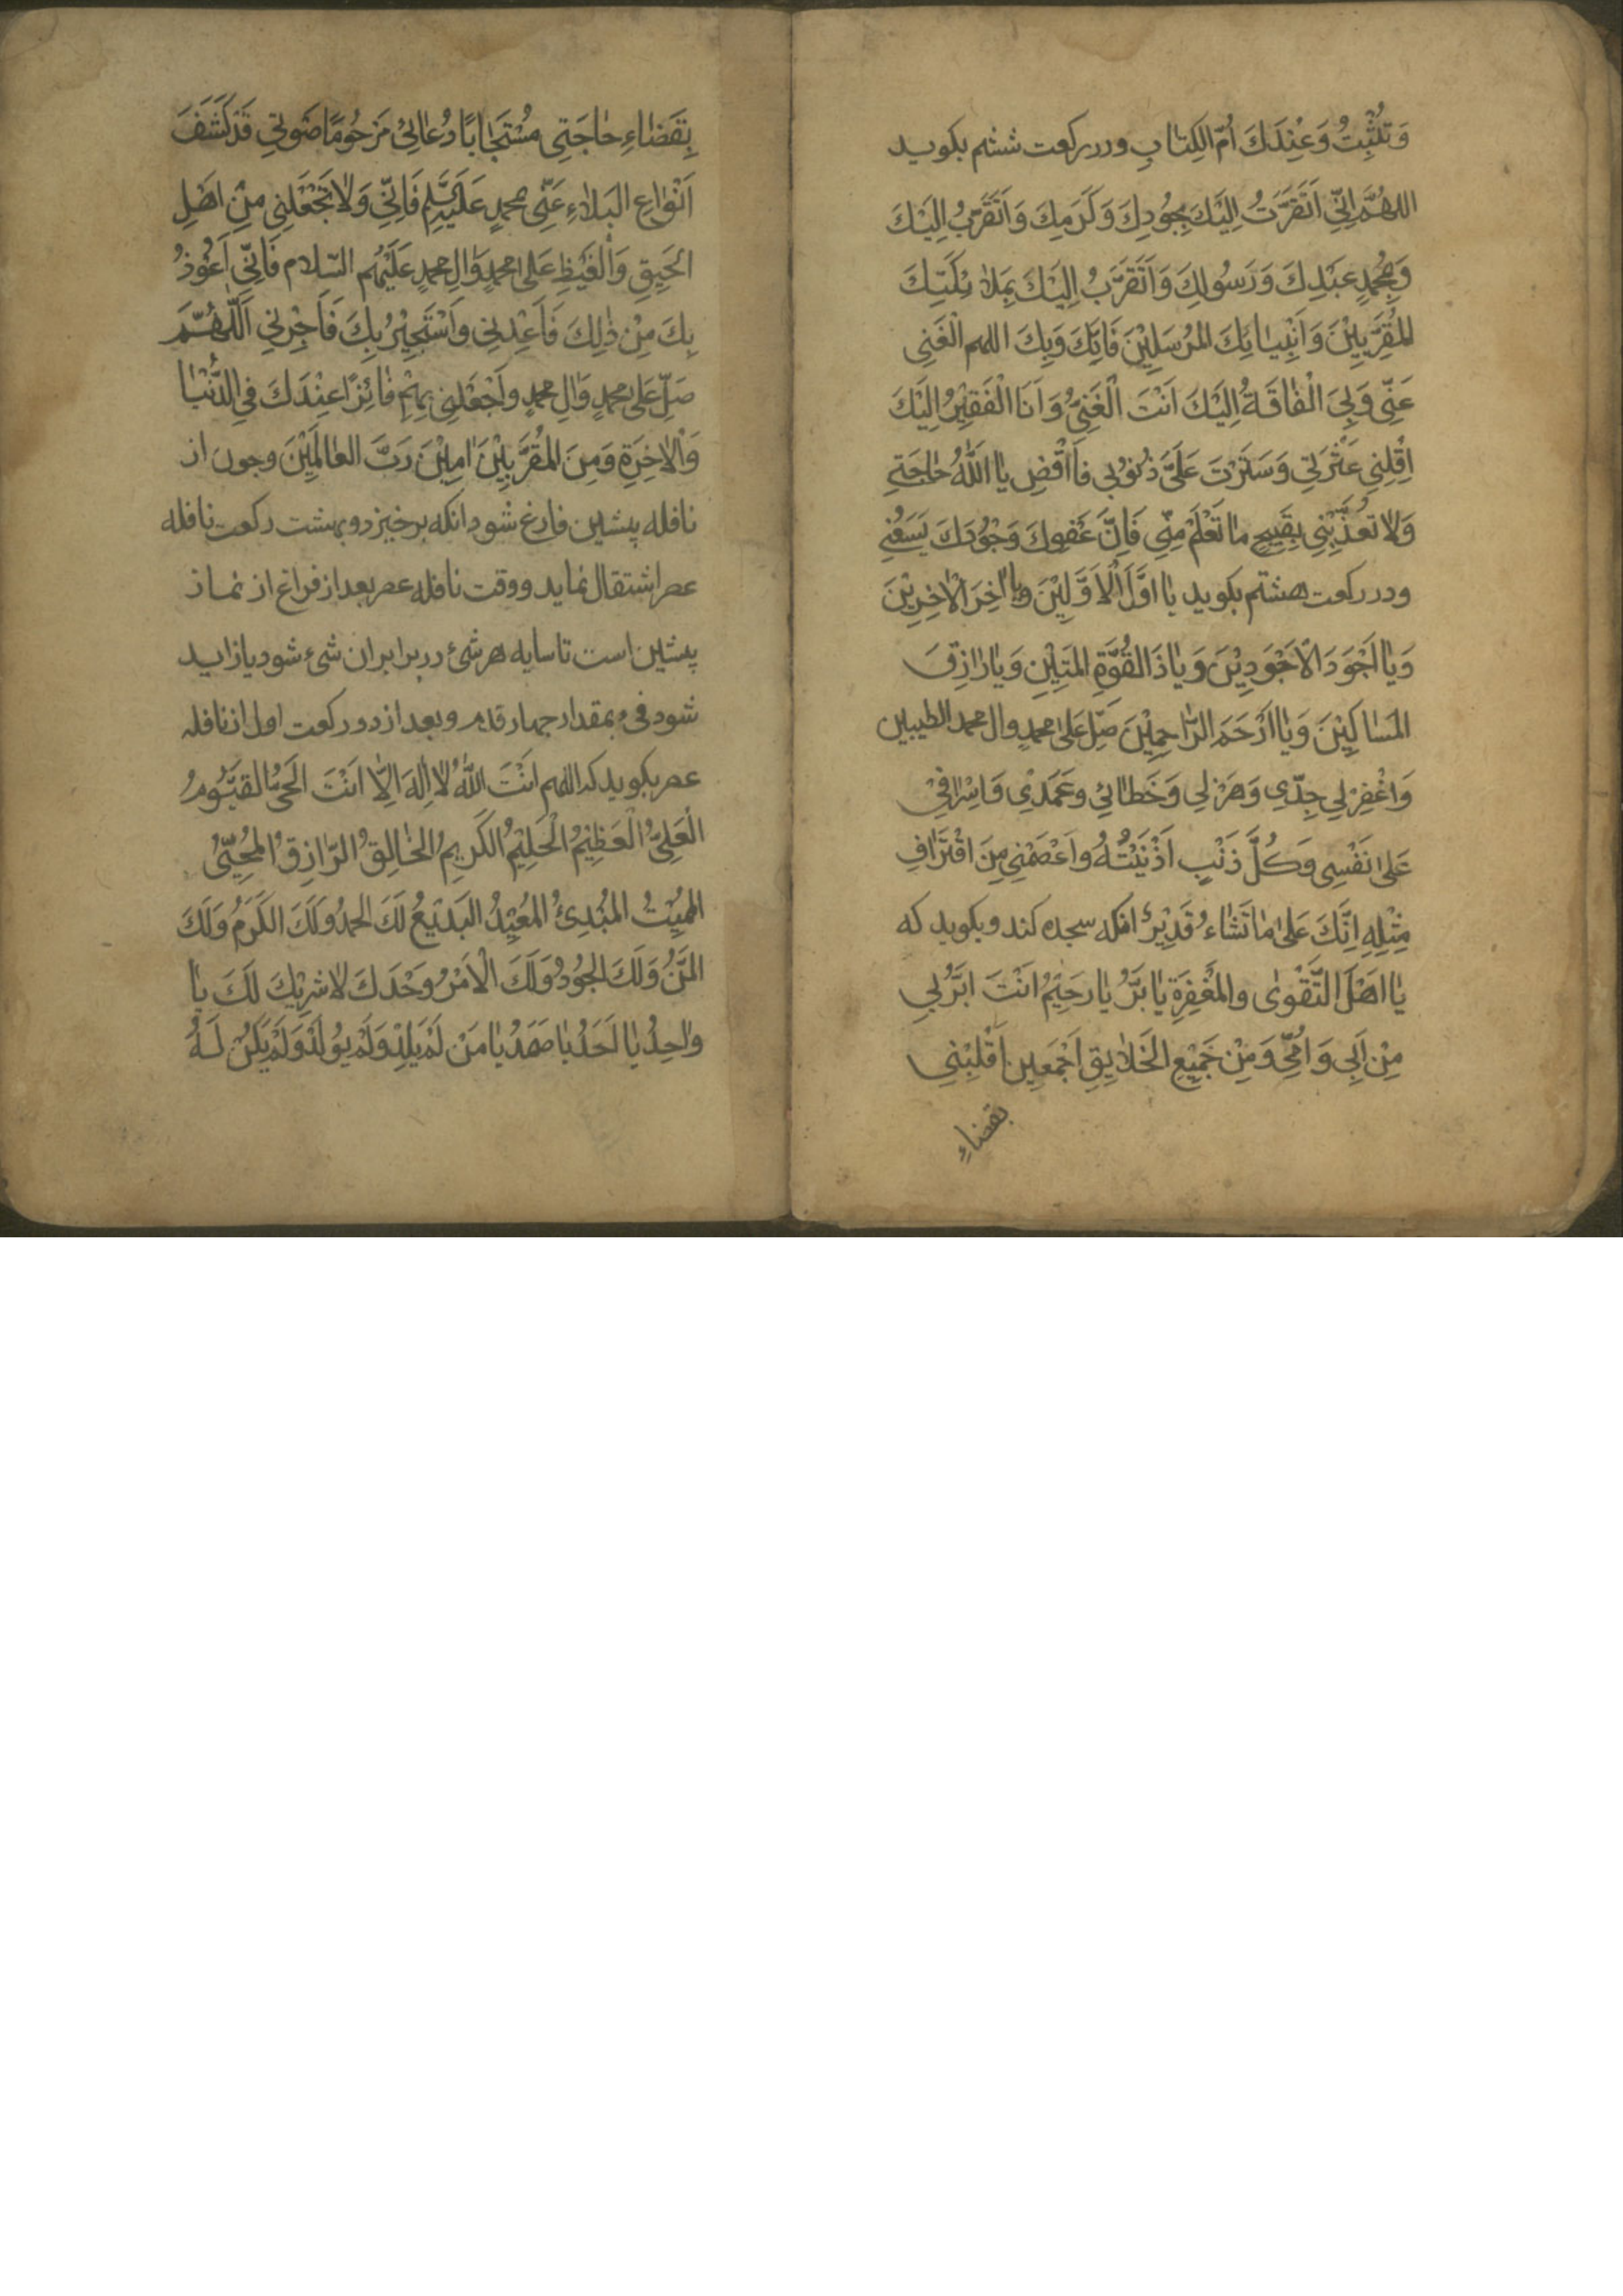 وَتُثْبِتُ وَعِنْدَكَ اُمّ الكِتابِ ودر ركعت ششم بكويد
اللهُمَّ اِنّي اَتَقَرَّبُ اِلَيْكَ بِجُودِكَ وَكَرَمِكَ وَاَتَقَرَّبُ اِلَيْكَ
وَبِمُحمدٍ عَبْدِكَ وَرَسُولِكَ وَاَتَقَرَّبُ اِلَيْكَ بِمَلائِكَتِكَ
المُقَرَّبِيْنَ وَاَنْبِيائِكَ المُرْسَلِيْنَ فَاِنَّكَ وَبِكَ اللهم الْغَنِى
عَنّى وَبِىَ الْفاقَةُ اِلَيْكَ اَنْتَ الْغَنِىُّ وَاَنَا الْفَقِيْرُ اِلَيْكَ
اَقِلْنِي عَثْرَتِي وَسَتَرْتَ عَلَىَّ ذُنُوْبي فَااقْضِ يا اَللهُ حاجَتي
وَلا تُعَذِّبْنِي بِقَبِيحِ ما تَعْلَمْ مِنّي فَاِنَّ عَفْوِكَ وَجُوْدَكَ يَسَعُنِي
ودر ركعت هشتم بكويد يا اَوَّلَ الْاَوَّلِيْنَ وَيا اخِرَ الْاخِرِيْنَ
وَيا اَجْوَدَ الْاَجْوَدِيْنَ وَياذَ القُوَّةِ المَتِيْنِ وَيا رازِقَ
المَساكِيْنَ وَيا اَرْحَمَ الرّاحِمِيْنَ صَلِّ عَلى محمدٍ وال محمد الطيبين
وَاغْفِرْ لِي جِدّي وَهَزْلي وَخَطائي وعَمَدْي وَاِسْرافيْ
عَلى نَفْسِى وَكُلَّ ذَنْبٍ اَذْنَبْتُهُ واَعْصِمْنِي مِنَ اقْتِرافِ
مِثْلِهِ اِنَّكَ عَلى ما تَشاءُ قَدِيْرٌ انكه سجده كند وبكويد كه
يا اَهْلَ التَّقْوى والمَغْفِرَةِ يا بَرُّ يا رَحِيْمُ اَنْتَ اَبَرُّ بي
مِنْ اَبِى وَاُمِّى وَمِنْ جَمِيْعِ الخَلايِقِ اَجْمَعِين اَقْلِبْنِي
بقضاءِ
بِقَضاءِ حاجَتِى مُسْتَجاباً دُعائِىْ مَرْحُومًا صَوتِي قَدْكَشَفَ
اَنْواعِ البَلاءِ عَنّى محمدٍ عَلَيْهِ السَّلم فَاِنّي وَلا تَجْعَلْنِي مِنْ اَهْلِ
الحَيِقِ وَالْغَيْظِ عَلى محمدٍ وَالِ محمدٍ عَلَيْهم السّلام فَاِنّي اَعُوْذُ
بِكَ مِنْ ذلِكَ فَاَعِذْنِي واَسْتَجِيْرُ بِكَ فَاَجِرْنِي اَللّهُمَّ
صَلِّ عَلى محمدٍ وَالِ محمدٍ واَجْعَلْنِي بِهِمْ فائِزًا عِنْدَكَ في الدُّنْيا
وَالْاخِرَةِ وَمِنَ المُقَرَّبِيْنَ امِيْنَ رَبَّ العالَمِيْنَ وجون از
نافله پيشين فارغ شود انكه برخيزد وبهشت ركعت نافله
عصر اشتقال نمايد ووقت نافله عصر بعد از فراغ از نماز
پيشين است تا سايه هرشئ در برابر ان شئ شود يا زايد
شود فئ بمقدار جهار قدم وبعد از دو ركعت اول از نافله
عصر بكويد كه اللهم اَنْتَ اللهُ لا اِلهَ اِلّا اَنْتَ الحَىُّ القَيُّومُ
الْعَلِىُّ الْعَظِيْمُ الْحَلِيْمُ الكَرِيمُ الخالِقُ الرّازِقُ المُحْيِى
المُمِيْتُ المُبْدِئُ المُعِيْدُ البَدِيْعُ لَكَ الحمدُ وَلَكَ الكَرَمُ وَلَكَ
المَنُّ وَلَكَ الجُوْدُ وَلَكَ الْاَمْرُ وَحْدَكَ لا شَرِيْكَ لَكَ يا
واحِدُ يا اَحَدُ يا صَمَدُ يا مَنْ لَمْ يَلِدْ وَلَمْ يُوْلَدْ وَلَمْ يَكُنْ لَهُ